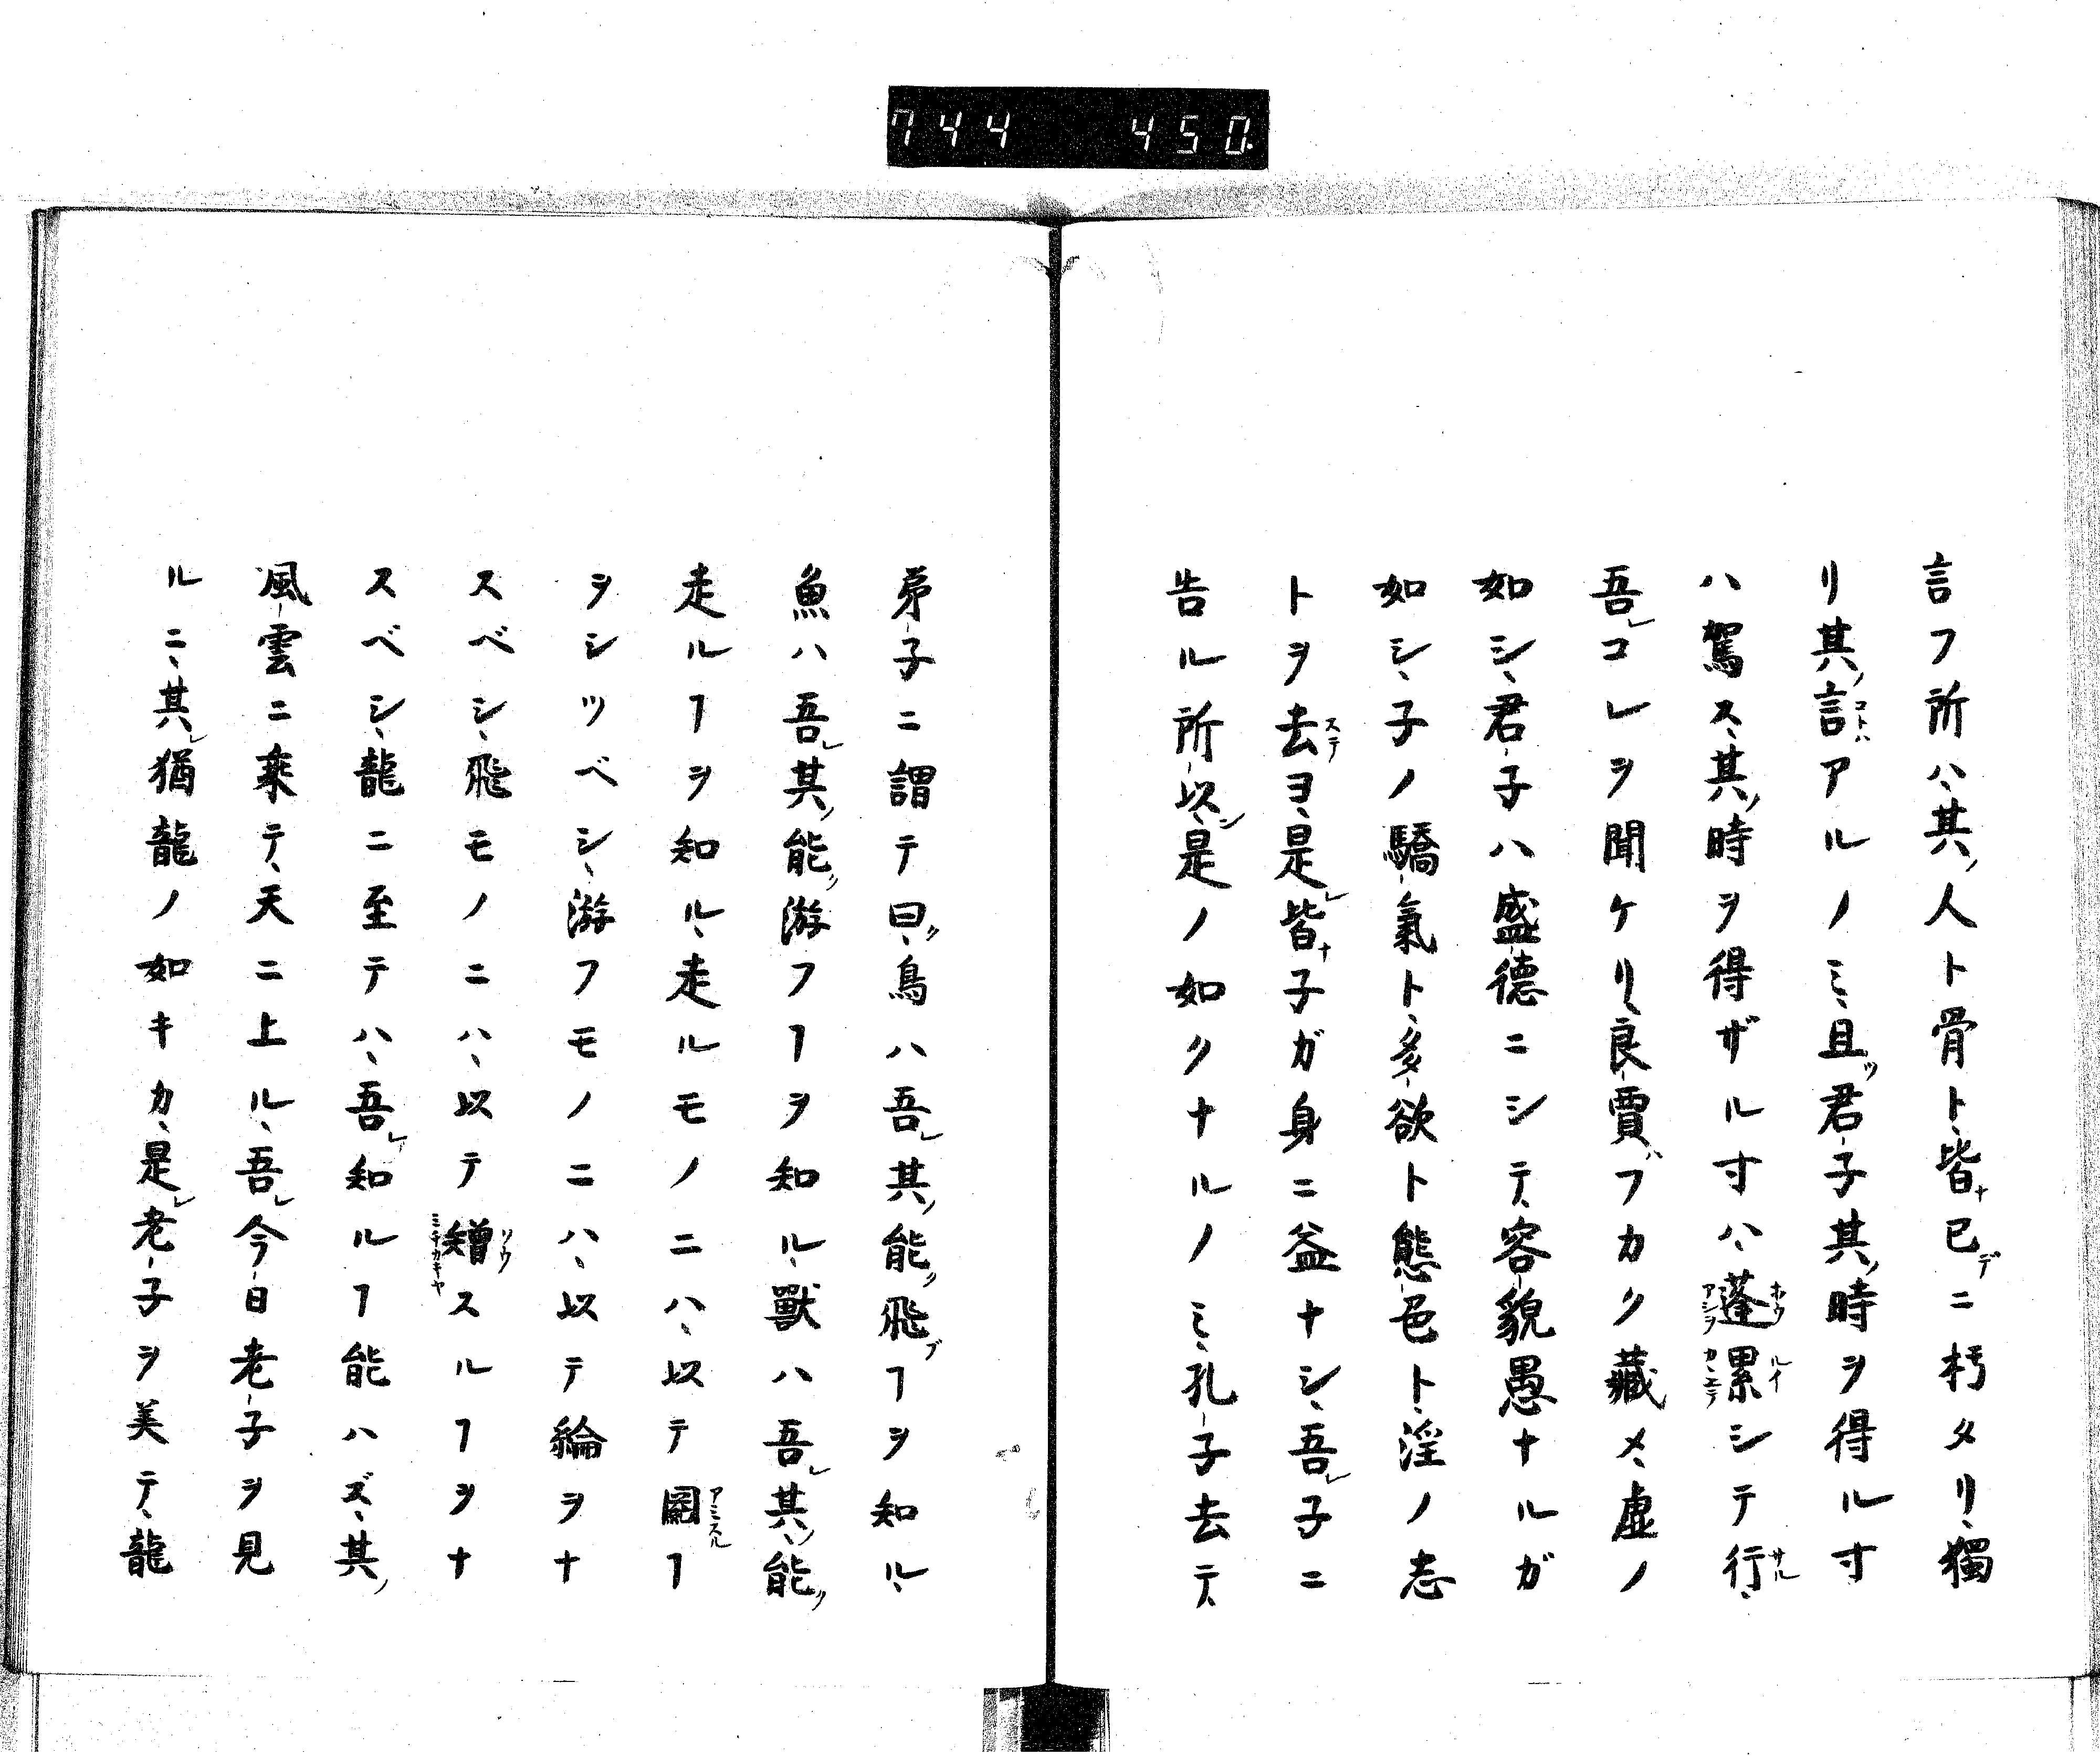 744 450.
言フ所ハ、其ノ人ト骨ト、皆ナ已デニ朽タリ、獨
リ其ノ言コトハアルノミ、且ツ君子其ノ時ヲ得ルヰ
ハ駕ス、其ノ時ヲ得ザルヰハ、蓬累シテ行サル、
吾レコレヲ聞ケリ、良賈ハフカク藏メ、虚ノ
如シ、君子ハ盛德ニシテ、容貌愚ナルガ
如シ、子ノ驕氣ト、多欲ト態色ト、淫ノ志
トヲ去ステヨ、是レ皆ナ子ガ身ニ益ナシ、吾レ子ニ
告ル所以ン、是ノ如クナルノミ、孔子去テ、
弟子ニ謂テ曰ク、鳥ハ吾レ其ノ能ク飛ブヿヲ知ル、
魚ハ吾レ其ノ能ク游フヿヲ知ル、獸ハ吾レ其ノ能ク
走ルヿヲ知ル、走ルモノニハ、以テ罔アミスルヿ
ヲシツベシ、游フモノニハ、以テ綸ヲナ
スベシ、飛モノニハ、以テ矰スルヿヲナ
スベシ、龍ニ至テハ、吾レ知ルヿ能ハズ、其ノ
風雲ニ乘テ、天ニ上ル、吾レ今日老子ヲ見
ルニ、其レ猶龍ノ如キカ、是レ老子ヲ美テ、龍